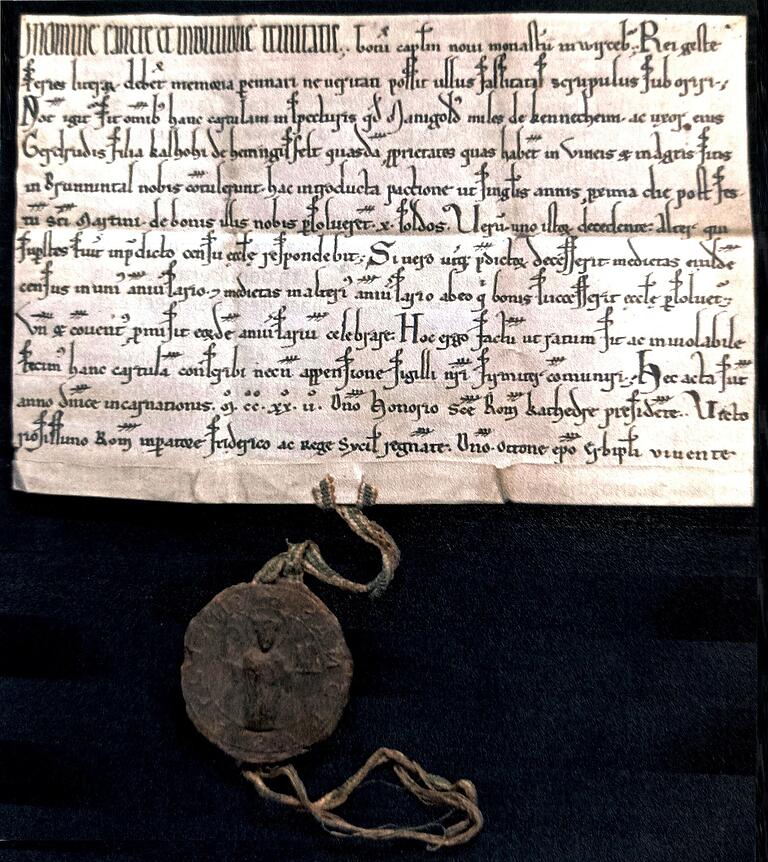 IN NOMINE SANCTE ET INDIVIDUE TRINITATIS. Totū capłm noui monastii in wirceb. Rei geste
series litteris debet memoria pennari ne ueritati possit ullus falsitatis scrupulus suboriri.
Not igit sit omib hanc cartulam inspecturis qd Manigold miles de kennecheim. ac uxor eius
Gerdrudis filia kalhohi de heitingisfelt quasdā pprietates quas habēt in Vineis & in agris sitas
in Brunnintal nobis cōtulerunt. hac introducta pactione ut singlis annis pxima die post fes
tū sci Martini. de bonis illis nobis psoluerēt .x. solidos. Uerū uno istor decedente. Alter qui
supstes fuit in pdicto censu eccłe respondebit. Si uero uterq pdictor decesserit. medietas eiusdē
census in uni aniuersario. medietas in alteri aniuersario ab eo q bonis successerit eccłe psoluet.
Vn & couent pmisit eorde aniuersariū celebrare. Hoc ergo factū ut ratum sit ac inuiolabile
fecim hanc cartulā conscribi necn appensione sigilli nri firmiter cōmuniri. Hec acta sūt
anno dnice incarnationis. M. CC. XX. II. Dno Honorio sce Rom kathedre presidēte. Victo
riosissimo Rom inperatore friderico ac Rege Sycil regnāte. Dno. Ottone epo Erbipli viuente